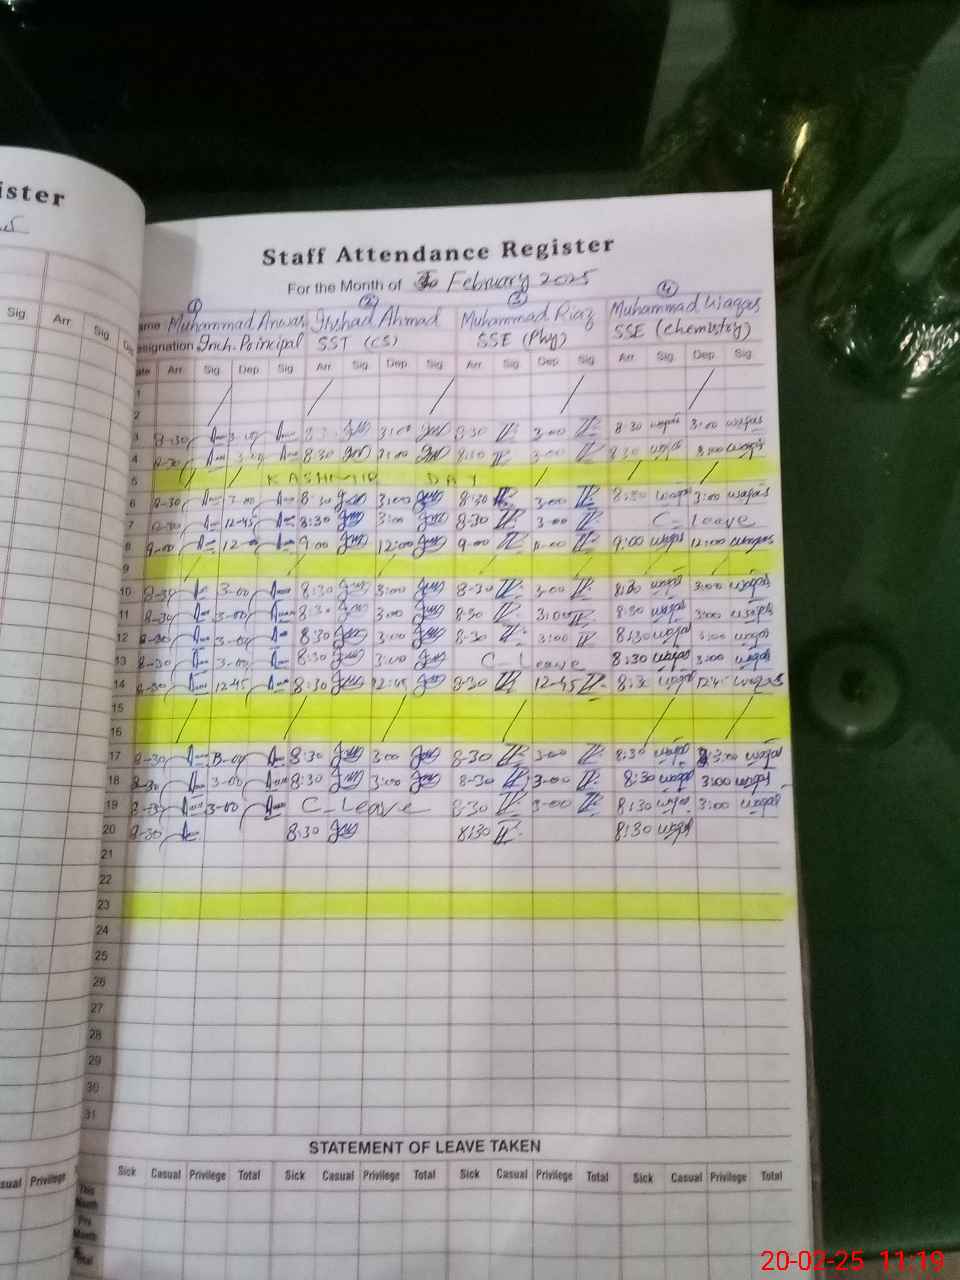 ister
Staff Attendance Register
For the Month of February 2025
1 2 3 4
Name Muhammad Anwar Irshad Ahmad Muhammad Riaz Muhammad Waqas
Designation Inch. Principal SST (CS) SSE (Phy) SSE (Chemistry)
Sig Arr Sig Date Arr. Sig. Dep. Sig. Arr. Sig. Dep. Sig. Arr. Sig. Dep. Sig. Arr. Sig. Dep. Sig.
1
2
3 8-30 3-00 8:30 3:00 8-30 3-00 8:30 waqas 3:00 waqas
4 8-30 3-00 8:30 3:00 8:30 3-00 8:30 waqas 3:00 waqas
5 KASHMIR DAY
6 8-30 3-00 8:30 3:00 8:30 3-00 8:30 waqas 3:00 waqas
7 8-30 12-45 8:30 3:00 8-30 3-00 C-Leave
8 9-00 12-00 9:00 12:00 9-00 9:00 waqas 12:00 waqas
9
10 8-30 3-00 8:30 3:00 8-30 3-00 8:30 waqas 3:00 waqas
11 8-30 3-00 8:30 3:00 8-30 3:00 8:30 waqas 3:00 waqas
12 8-30 3-00 8:30 3:00 8-30 3:00 8:30 waqas 3:00 waqas
13 8-30 3-00 8:30 3:00 C-Leave 8:30 waqas 3:00 waqas
14 8-30 12-45 8:30 12:45 8-30 12-45 8:30 waqas 12:45 waqas
15
16
17 8-30 3-00 8:30 3:00 8-30 3-00 8:30 waqas 3:00 waqas
18 8-30 3-00 8:30 3:00 8-30 3-00 8:30 waqas 3:00 waqas
19 8-30 3-00 C-Leave 8-30 3-00 8:30 waqas 3:00 waqas
20 8-30 8:30 8:30 8:30 waqas
21
22
23
24
25
26
27
28
29
30
31
STATEMENT OF LEAVE TAKEN
sual Privilege Sick Casual Privilege Total Sick Casual Privilege Total Sick Casual Privilege Total Sick Casual Privilege Total
This Month
Pre Month
Total
20-02-25 11:19